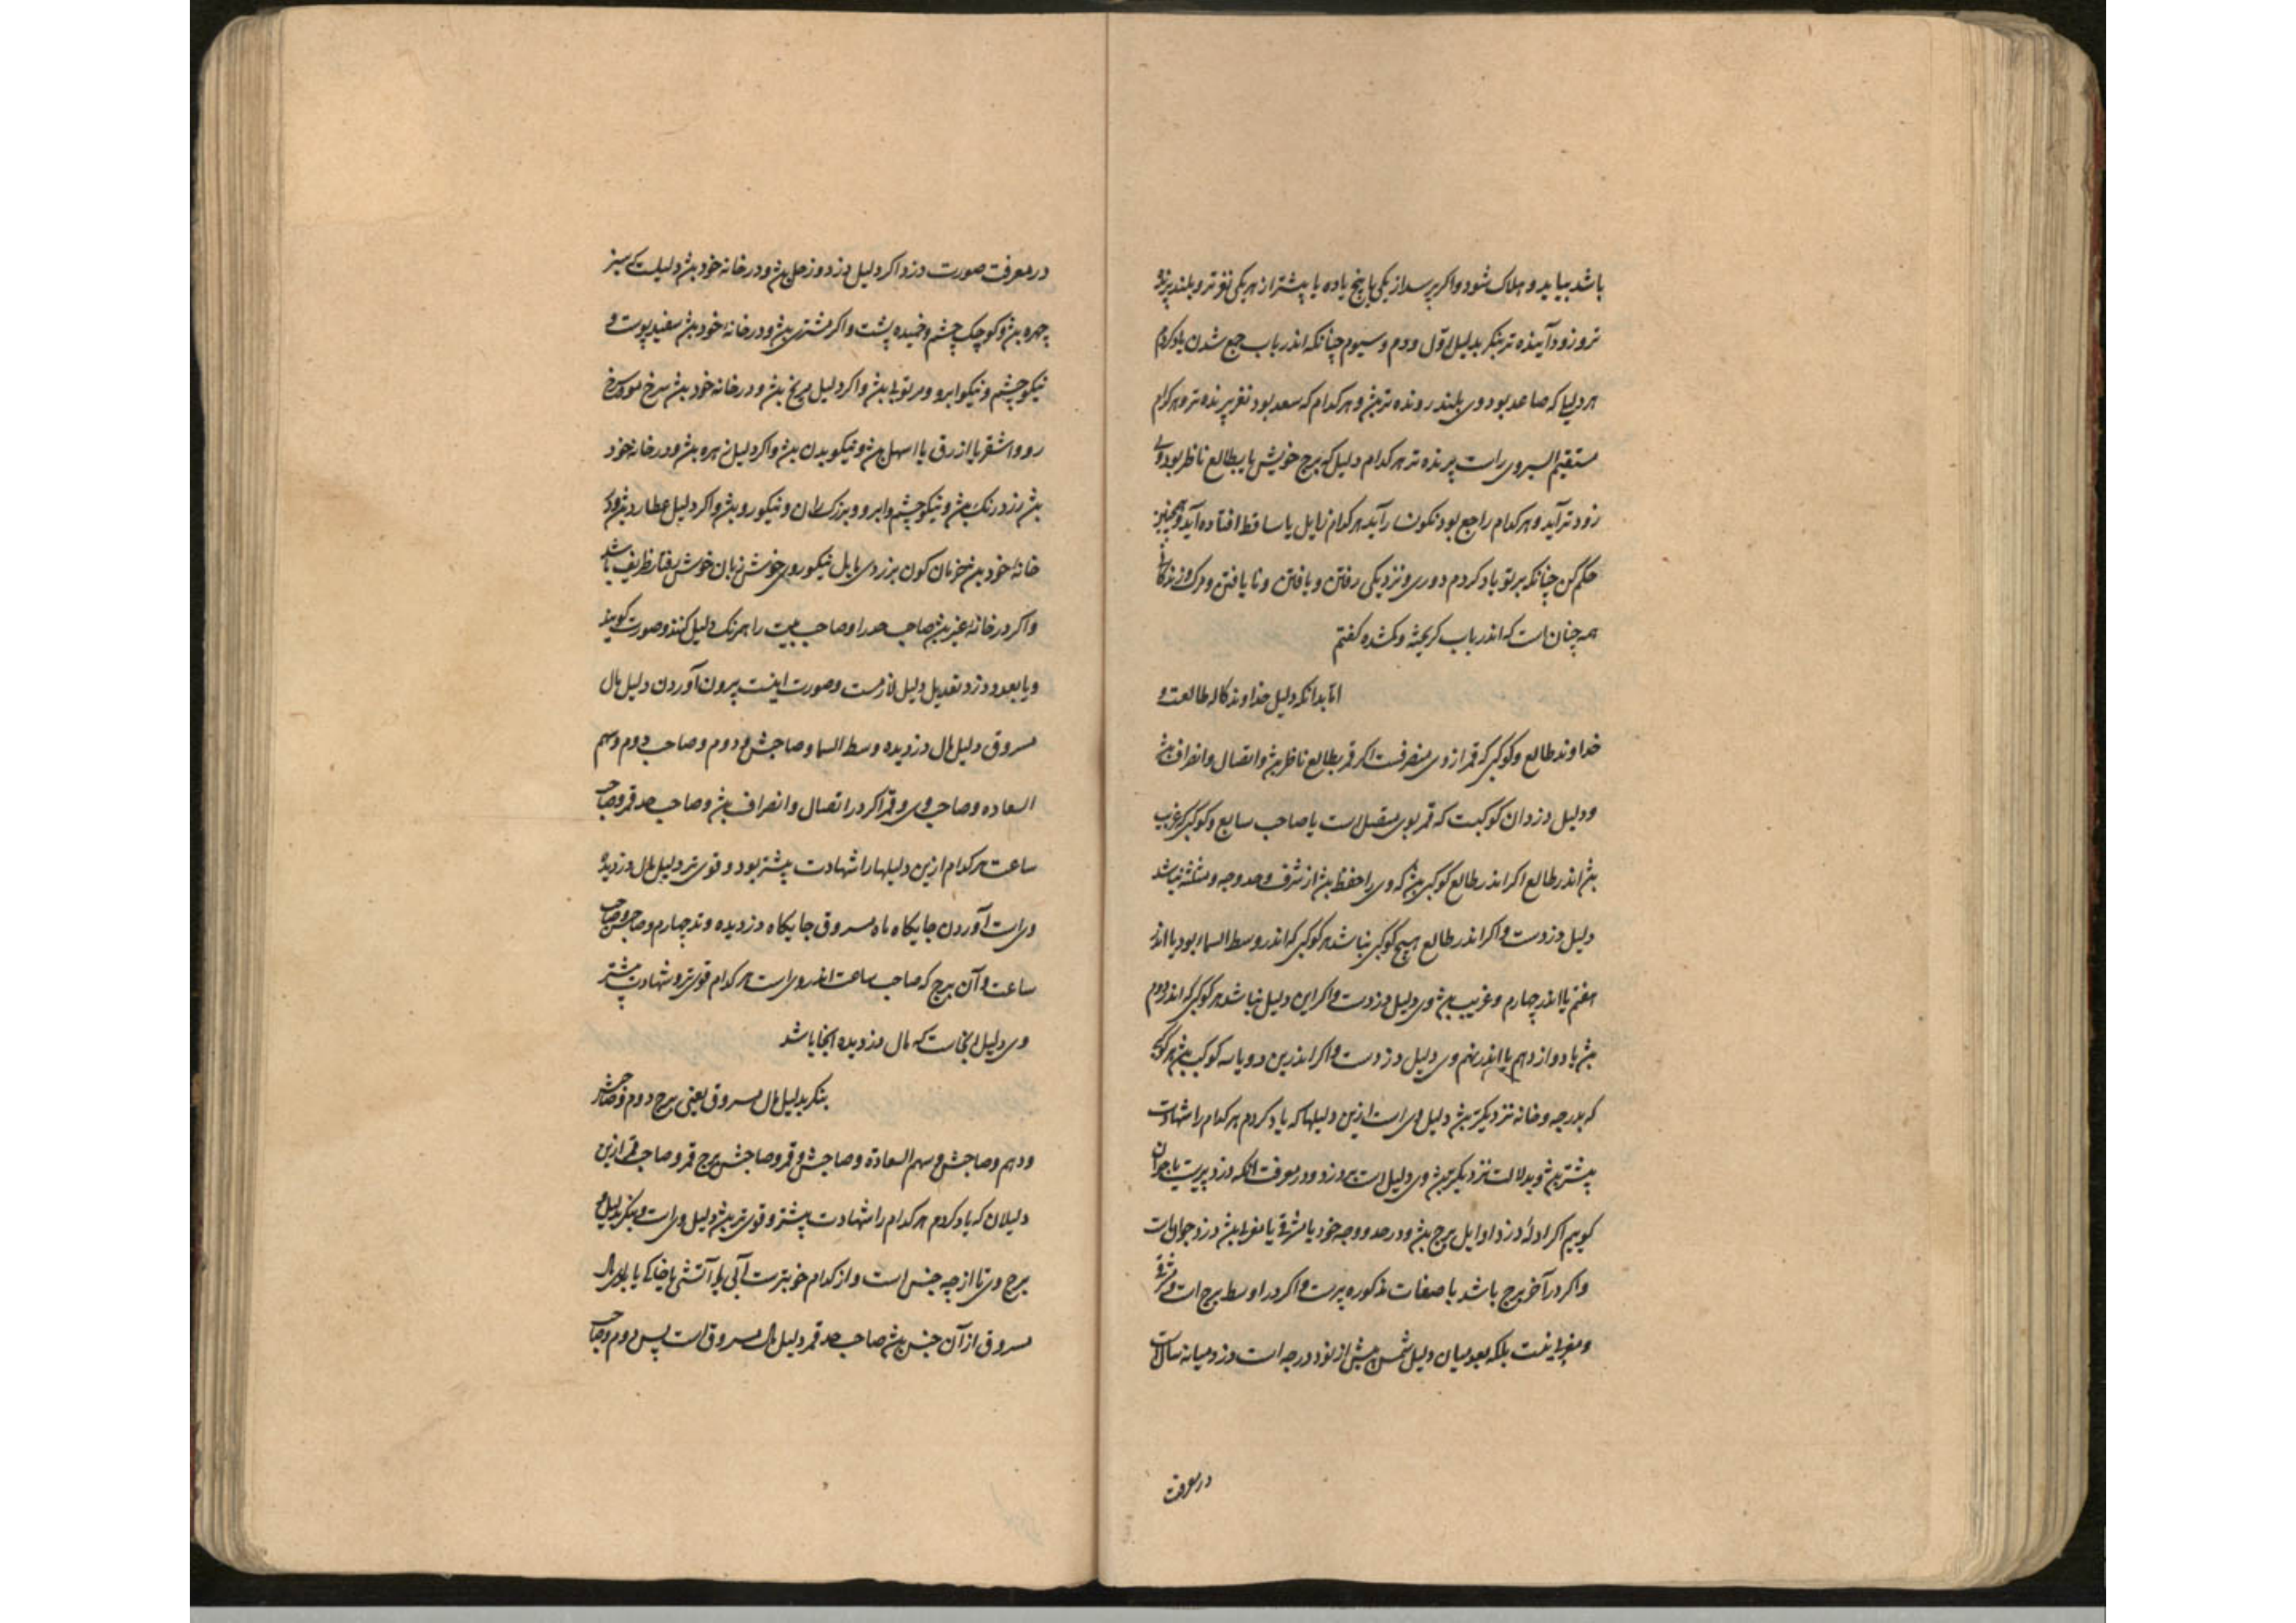 باشد بیاید و هلاک شود و اکر پرسد از یکی یا پنج یا ده یا پیشتر از هر یکی نغز تر و بلند پرنده
تر و زود آینده تر بنکر بدلیل اول و دوم و سیوم چنانکه اندر باب جمع شدن یاد کردم
هر دلیل که صاعد بود وی بلند رونده تر بش و هر کدام که سعد بود نغز پرنده تر و هر کدام
مستقیم السیر وی راست پرنده تر هر کدام دلیل که برج خویش یا بطالع ناظر بود وی
زود تر آید و هر کدام راجع بود نکونسار آید هر کدام زایل یا ساقط افتاده آید و همچنین
حکم کن چنانکه بر تو یاد کردم دوری و نزدیکی رفتن و یافتن و نا یافتن و مرک و زندکانی
همچنان است که اندر باب کریخته و کمشده کفتم
اما بدانکه دلیل خداوند کاله طالعست و
خداوند طالع و کوکبی که قمر از وی منصرفست اکر قمر بطالع ناظر بش و اتصال و انصراف بش
و دلیل دزدان کوکبیست که قمر بوی متصل است یا صاحب سابع و کوکبی که غریب
بش اندر طالع اکر اندر طالع کوکبی بش که وی را حفظ بش از شرف و حد و وجه و مثلثه نباشد
دلیل دزدست و اکر اندر طالع هیچ کوکبی نباشد هر کوکبی که اندر وسط السماء بود یا اندر
هفتم یا اندر چهارم و غریب بش وی دلیل دزدست و اکر این دلیل نباشد هر کوکبی که اندر دوم
بش یا دوازدهم یا اندر نهم وی دلیل دزدست و اکر اندرین دو یا سه کوکب بش هر کوکبی
که بدرجه و خانه نزدیکتر بش دلیل وی است ازین دلیلها که یاد کردم هر کدام را شهادت
پیشتر بش و بدلالت نزدیکتر بش وی دلیل است بر دزد و در معرفت انکه دزد پیرست یا جوان
کوییم اکر ادله دزد اوایل برج بش و در حد و وجه خود یا مشرقی یا مغربی بش دزد جوان است
و اکر در آخر برج باشد با صفات مذکوره پیرست و اکر در اوسط برج است و مشرقی
و مغربی نیست بلکه بعد میان دلیل شمس بیش از نود درجه است دزد میانه سال است
در معرفت
در معرفت صورت دزد اکر دلیل دزد و زحل بش و در خانه خود بش دلیلست که سبز
چهره بش و کوچک چشم و خمیده پشت و اکر مشتری بش و در خانه خود بش سفید پوست و
نیکو چشم و نیکو ابرو و بش و اکر دلیل مریخ بش و در خانه خود بش سرخ موی سرخ
رو و اشقر یا ازرق یا اسهل بش و نیکو بدن بش و اکر دلیل زهره بش و در خانه خود
بش زرد رنک بش و نیکو چشم و ابرو و بزرک ران و نیکو رو بش و اکر دلیل عطارد بش و در
خانه خود بش کون بزردی مایل نیکو روی خوش زبان خوش ظریف باشد
و اکر در خانه غیر بش صاحب حد را و صاحب بیت را همرنک دلیل کنند و صورت کویند
و تعدیل دلیل لازمست و صورت اینست بیرون آوردن دلیل مال
مسروق دلیل مال دزدیده وسط السما و صاحبش و دوم و صاحب دوم و سهم
السعاده و صاحب وی و قمر اکر در اتصال و انصراف بش و صاحب حد قمر و صاحب
ساعت هر کدام ازین دلیلها را شهادت پیشتر بود و قوی تر دلیل مال دزدیده
وی است آوردن جایکاه مسروق جایکاه دزدیده وتد چهارم و صاحبش و صاحب
ساعت و آن برج که صاحب ساعت اندر وی است هر کدام قوی تر و شهادت پیشتر
وی دلیل انجاست که مال دزدیده انجا باشد
بنکر بدلیل مال مسروق یعنی برج دوم و صاحبش
و دهم و صاحبش و سهم السعادة و صاحبش و قمر و صاحبش برج قمر و صاحب قمر ازین
دلیلان که یاد کردم هر کدام را شهادت پیشتر و قوی تر بش دلیل وی است و بنکر بدلیل و
برج وی تا از چه جنس است و از کدام آبی یا آتشی یا خاکی یا بادی مال
مسروق از آن جنس بش صاحب حد قمر دلیل مال مسروق است پس دوم و صاحب